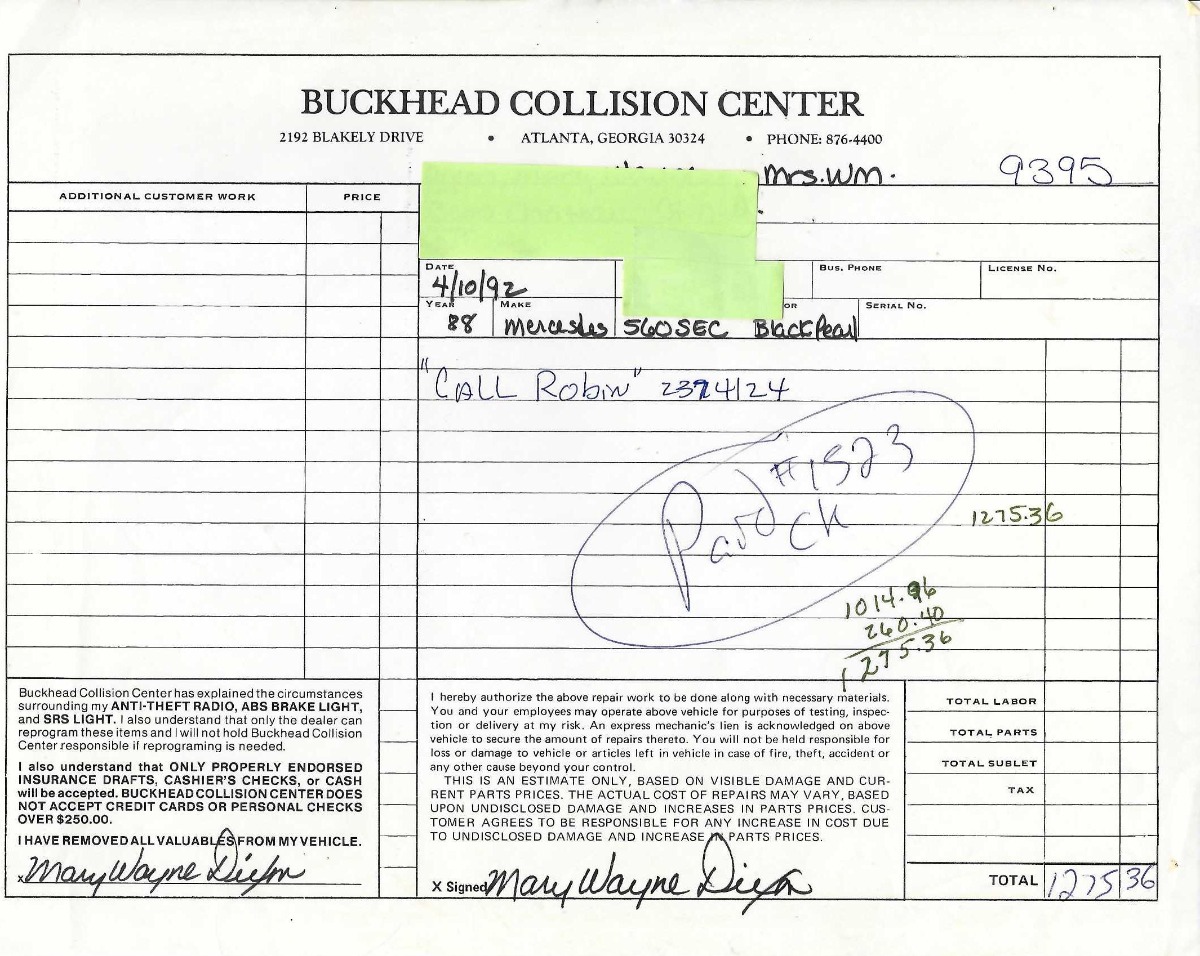 BUCKHEAD COLLISION CENTER
2192 BLAKELY DRIVE • ATLANTA, GEORGIA 30324 • PHONE: 876-4400
Mrs. Wm. 9395
ADDITIONAL CUSTOMER WORK PRICE
DATE BUS. PHONE LICENSE NO.
4/10/92
YEAR MAKE OR SERIAL NO.
88 Mercedes 560SEC Black Pearl
"CALL ROBIN" 2374124
Paid #1523
CK
1275.36
1014.96
260.40
1275.36
Buckhead Collision Center has explained the circumstances
surrounding my ANTI-THEFT RADIO, ABS BRAKE LIGHT,
and SRS LIGHT. I also understand that only the dealer can
reprogram these items and I will not hold Buckhead Collision
Center responsible if reprograming is needed.
I also understand that ONLY PROPERLY ENDORSED
INSURANCE DRAFTS, CASHIER'S CHECKS, or CASH
will be accepted. BUCKHEAD COLLISION CENTER DOES
NOT ACCEPT CREDIT CARDS OR PERSONAL CHECKS
OVER $250.00.
I HAVE REMOVED ALL VALUABLES FROM MY VEHICLE.
x Mary Wayne Dixon
I hereby authorize the above repair work to be done along with necessary materials.
You and your employees may operate above vehicle for purposes of testing, inspec-
tion or delivery at my risk. An express mechanic's lien is acknowledged on above
vehicle to secure the amount of repairs thereto. You will not be held responsible for
loss or damage to vehicle or articles left in vehicle in case of fire, theft, accident or
any other cause beyond your control.
THIS IS AN ESTIMATE ONLY, BASED ON VISIBLE DAMAGE AND CUR-
RENT PARTS PRICES. THE ACTUAL COST OF REPAIRS MAY VARY, BASED
UPON UNDISCLOSED DAMAGE AND INCREASES IN PARTS PRICES. CUS-
TOMER AGREES TO BE RESPONSIBLE FOR ANY INCREASE IN COST DUE
TO UNDISCLOSED DAMAGE AND INCREASE IN PARTS PRICES.
X Signed Mary Wayne Dixon
TOTAL LABOR
TOTAL PARTS
TOTAL SUBLET
TAX
TOTAL 1275 36